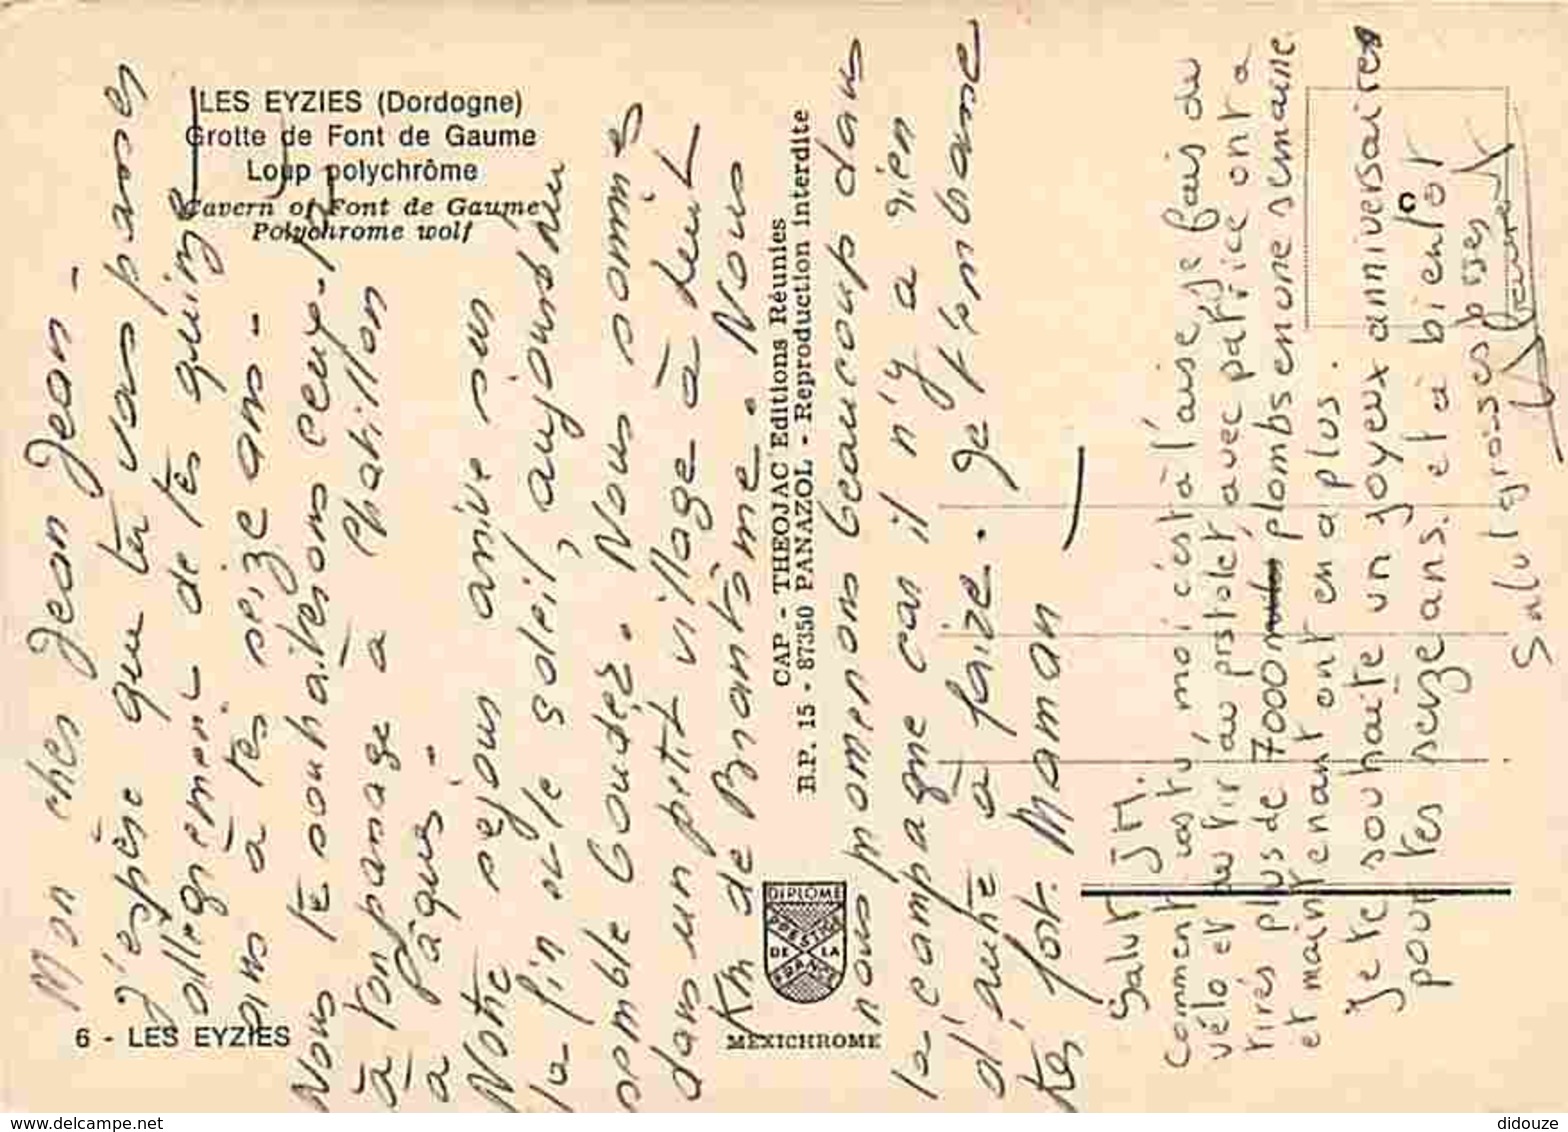 LES EYZIES (Dordogne)
Grotte de Font de Gaume
Loup polychrôme
Cavern of Font de Gaume
Polychrome wolf
6 - LES EYZIES
CAP - THEOJAC Editions Réunies
B.P. 15 - 87350 PANAZOL - Reproduction interdite
DIPLOME
PRESTIGE
DE LA
FRANCE
MEXICHROME
C
Mon cher Jean Jean -
J'espère que tu vas passer
allégrement de tes quinze
ans à tes seize ans -
Nous te souhaiterons ceux-ci
à ton passage à Chatillon
à Pâques -
Notre séjour arrive sur
la fin et le soleil, aujourd'hui
semble bouder. Nous sommes
dans un petit village à huit
Km de Brantôme. Nous
nous promenons beaucoup dans
la campagne car il n'y a rien
d'autre à faire. Je t'embrasse
très fort. Maman
Salut JM.
Comment vas tu, moi c'est à l'aise, je fais du
vélo et du tir au pistolet, avec patrice on t a
tirés plus de 7000 plombs en une semaine
et maintenant ont en a plus.
Je te souhaite un joyeux anniversaire
pour tes seize ans. et à bientôt
Salut grosses bises
Laurent
didouze / delcampe.net